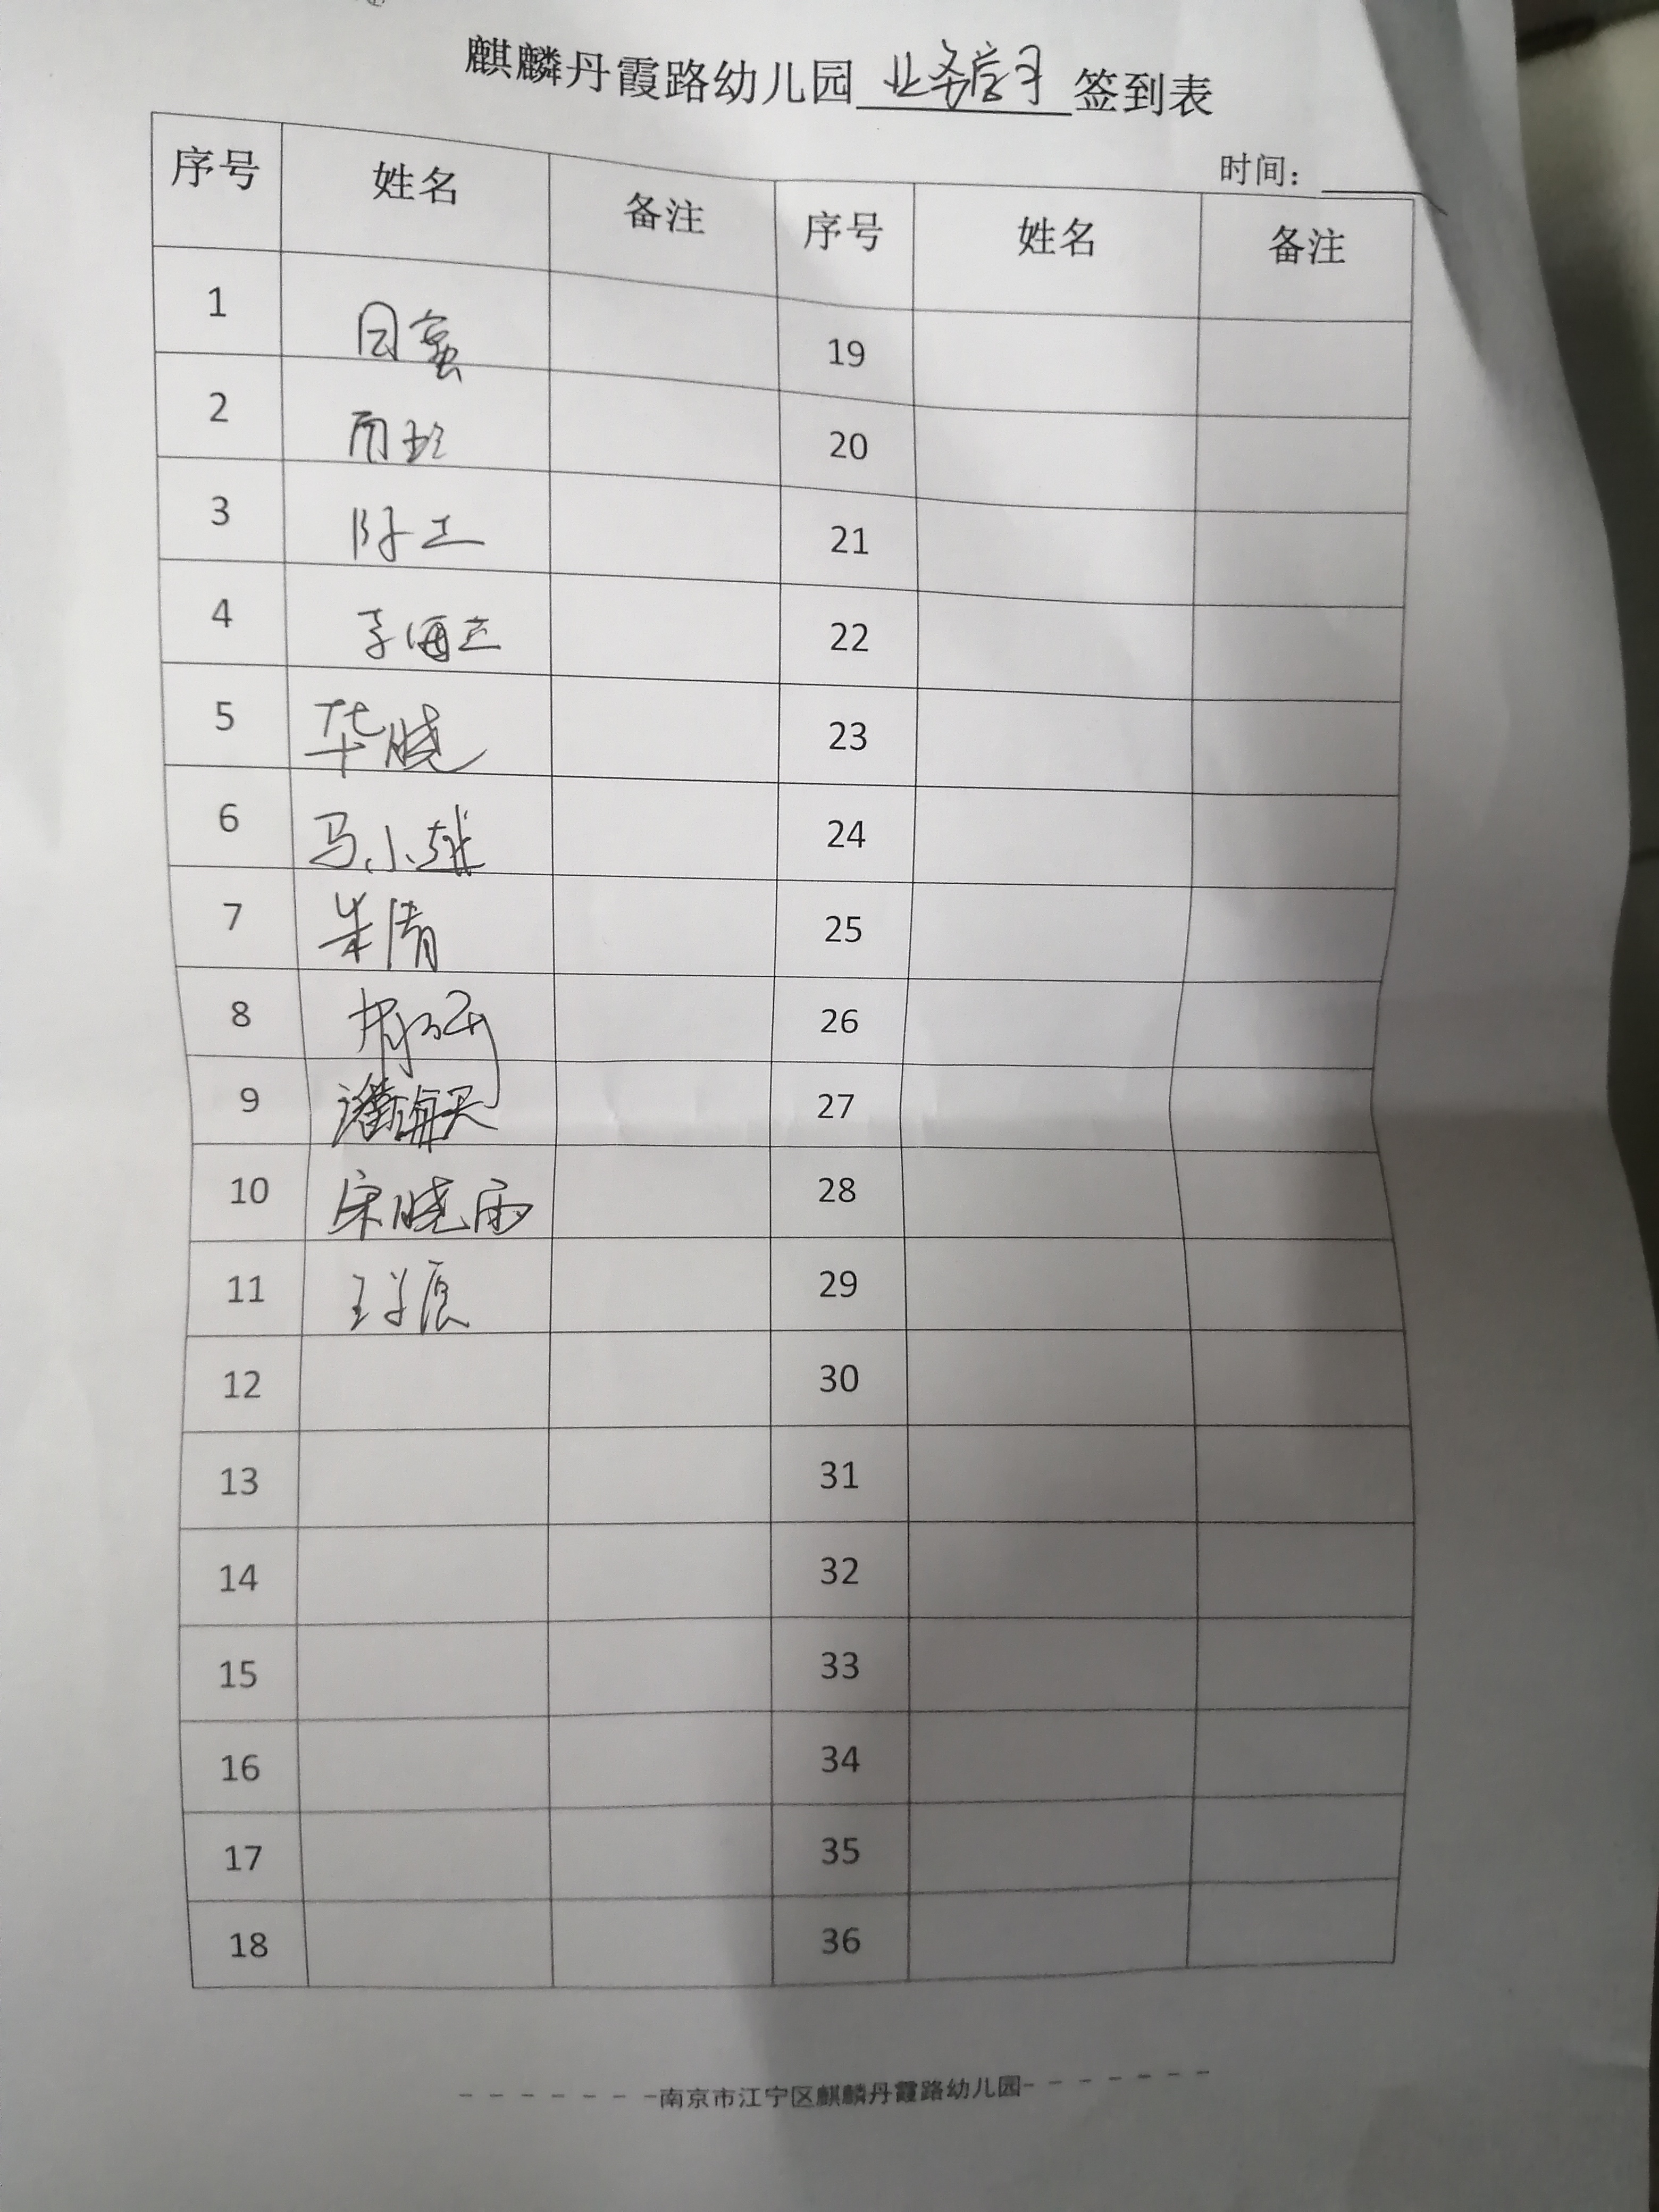 麒麟丹霞路幼儿园 业务学习 签到表
时间：
序号 姓名 备注 序号 姓名 备注
1 19
2 20
3 陈 21
4 李海 22
5 华晓 23
6 马小越 24
7 朱倩 25
8 26
9 潘海天 27
10 宋晓雨 28
11 王 29
12 30
13 31
14 32
15 33
16 34
17 35
18 36
南京市江宁区麒麟丹霞路幼儿园